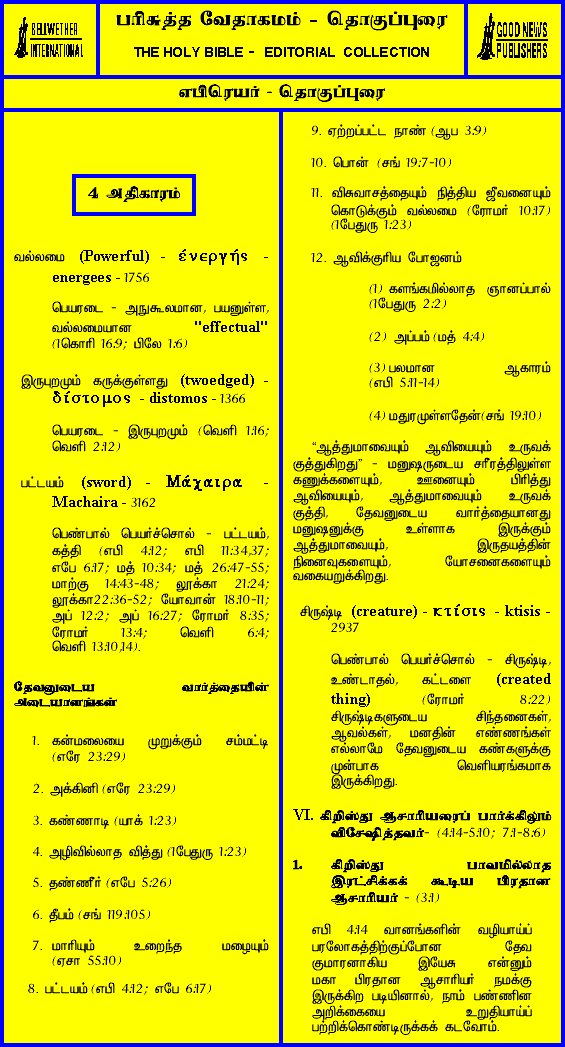 BELLWETHER
INTERNATIONAL
பரிசுத்த வேதாகமம் - தொகுப்புரை
THE HOLY BIBLE - EDITORIAL COLLECTION
GOOD NEWS
PUBLISHERS
எபிரெயர் - தொகுப்புரை
4 அதிகாரம்
வல்லமை (Powerful) - ένεργής -
energees - 1756
பெயரடை - அநுகூலமான, பயனுள்ள,
வல்லமையான "effectual"
(1கொரி 16:9; பிலே 1:6)
இருபுறமும் கருக்குள்ளது (twoedged) -
δίστομος - distomos - 1366
பெயரடை - இருபுறமும் (வெளி 1:16;
வெளி 2:12)
பட்டயம் (sword) - Μάχαιρα -
Machaira - 3162
பெண்பால் பெயர்ச்சொல் - பட்டயம்,
கத்தி (எபி 4:12; எபி 11:34,37;
எபே 6:17; மத் 10:34; மத் 26:47-55;
மாற்கு 14:43-48; லூக்கா 21:24;
லூக்கா22:36-52; யோவான் 18:10-11;
அப் 12:2; அப் 16:27; ரோமர் 8:35;
ரோமர் 13:4; வெளி 6:4;
வெளி 13:10,14).
தேவனுடைய வார்த்தையின்
அடையாளங்கள்
1. கன்மலையை முறுக்கும் சம்மட்டி
(எரே 23:29)
2. அக்கினி (எரே 23:29)
3. கண்ணாடி (யாக் 1:23)
4. அழிவில்லாத வித்து (1பேதுரு 1:23)
5. தண்ணீர் (எபே 5:26)
6. தீபம் (சங் 119:105)
7. மாரியும் உறைந்த மழையும்
(ஏசா 55:10)
8. பட்டயம் (எபி 4:12; எபே 6:17)
9. ஏற்றப்பட்ட நாண் (ஆப 3:9)
10. பொன் (சங் 19:7-10)
11. விசுவாசத்தையும் நித்திய ஜீவனையும்
கொடுக்கும் வல்லமை (ரோமர் 10:17)
(1பேதுரு 1:23)
12. ஆவிக்குரிய போஜனம்
(1) களங்கமில்லாத ஞானப்பால்
(1பேதுரு 2:2)
(2) அப்பம் (மத் 4:4)
(3) பலமான ஆகாரம்
(எபி 5:11-14)
(4) மதுரமுள்ளதேன்(சங் 19:10)
“ஆத்துமாவையும் ஆவியையும் உருவக்
குத்துகிறது” - மனுஷருடைய சரீரத்திலுள்ள
கணுக்களையும், ஊனையும் பிரித்து
ஆவியையும், ஆத்துமாவையும் உருவக்
குத்தி, தேவனுடைய வார்த்தையானது
மனுஷனுக்கு உள்ளாக இருக்கும்
ஆத்துமாவையும், இருதயத்தின்
நினைவுகளையும், யோசனைகளையும்
வகையறுக்கிறது.
சிருஷ்டி (creature) - κτίσις - ktisis -
2937
பெண்பால் பெயர்ச்சொல் - சிருஷ்டி,
உண்டாதல், கட்டளை (created
thing) (ரோமர் 8:22)
சிருஷ்டிகளுடைய சிந்தனைகள்,
ஆவல்கள், மனதின் எண்ணங்கள்
எல்லாமே தேவனுடைய கண்களுக்கு
முன்பாக வெளியரங்கமாக
இருக்கிறது.
VI. கிறிஸ்து ஆசாரியரைப் பார்க்கிலும்
விசேஷித்தவர்- (4:14-5:10; 7:1-8:6)
1. கிறிஸ்து பாவமில்லாத
இரட்சிக்கக் கூடிய பிரதான
ஆசாரியர் - (3:1)
எபி 4:14 வானங்களின் வழியாய்ப்
பரலோகத்திற்குப்போன தேவ
குமாரனாகிய இயேசு என்னும்
மகா பிரதான ஆசாரியர் நமக்கு
இருக்கிற படியினால், நாம் பண்ணின
அறிக்கையை உறுதியாய்ப்
பற்றிக்கொண்டிருக்கக் கடவோம்.